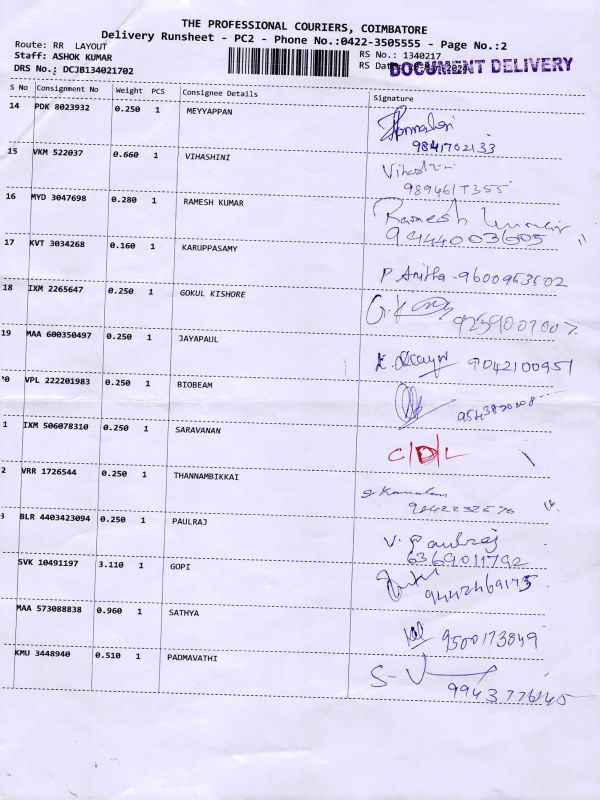 THE PROFESSIONAL COURIERS, COIMBATORE
Delivery Runsheet - PC2 - Phone No.:0422-3505555 - Page No.:2
Route: RR LAYOUT
RS No.: 1340217
Staff: ASHOK KUMAR
RS Date:
DOCUMENT DELIVERY
DRS No.: DCJB134021702
S No Consignment No Weight PCS Consignee Details Signature
14 PDK 8023932 0.250 1 MEYYAPPAN
9841702133
15 VKM 522037 0.660 1 VIHASHINI Vihashini
16 MYD 3047698 0.280 1 RAMESH KUMAR Ramesh Kumar
9444003605
17 KVT 3034268 0.160 1 KARUPPASAMY
P Anitha - 9600963602
18 IXM 2265647 0.250 1 GOKUL KISHORE
19 MAA 600350497 0.250 1 JAYAPAUL
9042100951
VPL 222201983 0.250 1 BIOBEAM
1 IXM 506078310 0.250 1 SARAVANAN C/D/L
2 VRR 1726544 0.250 1 THANNAMBIKKAI
9042232576
BLR 4403423094 0.250 1 PAULRAJ V. Paulraj
6369011792
SVK 10491197 3.110 1 GOPI
9442469175
MAA 573088838 0.960 1 SATHYA
9500173849
KMU 3448940 0.510 1 PADMAVATHI
9943776145